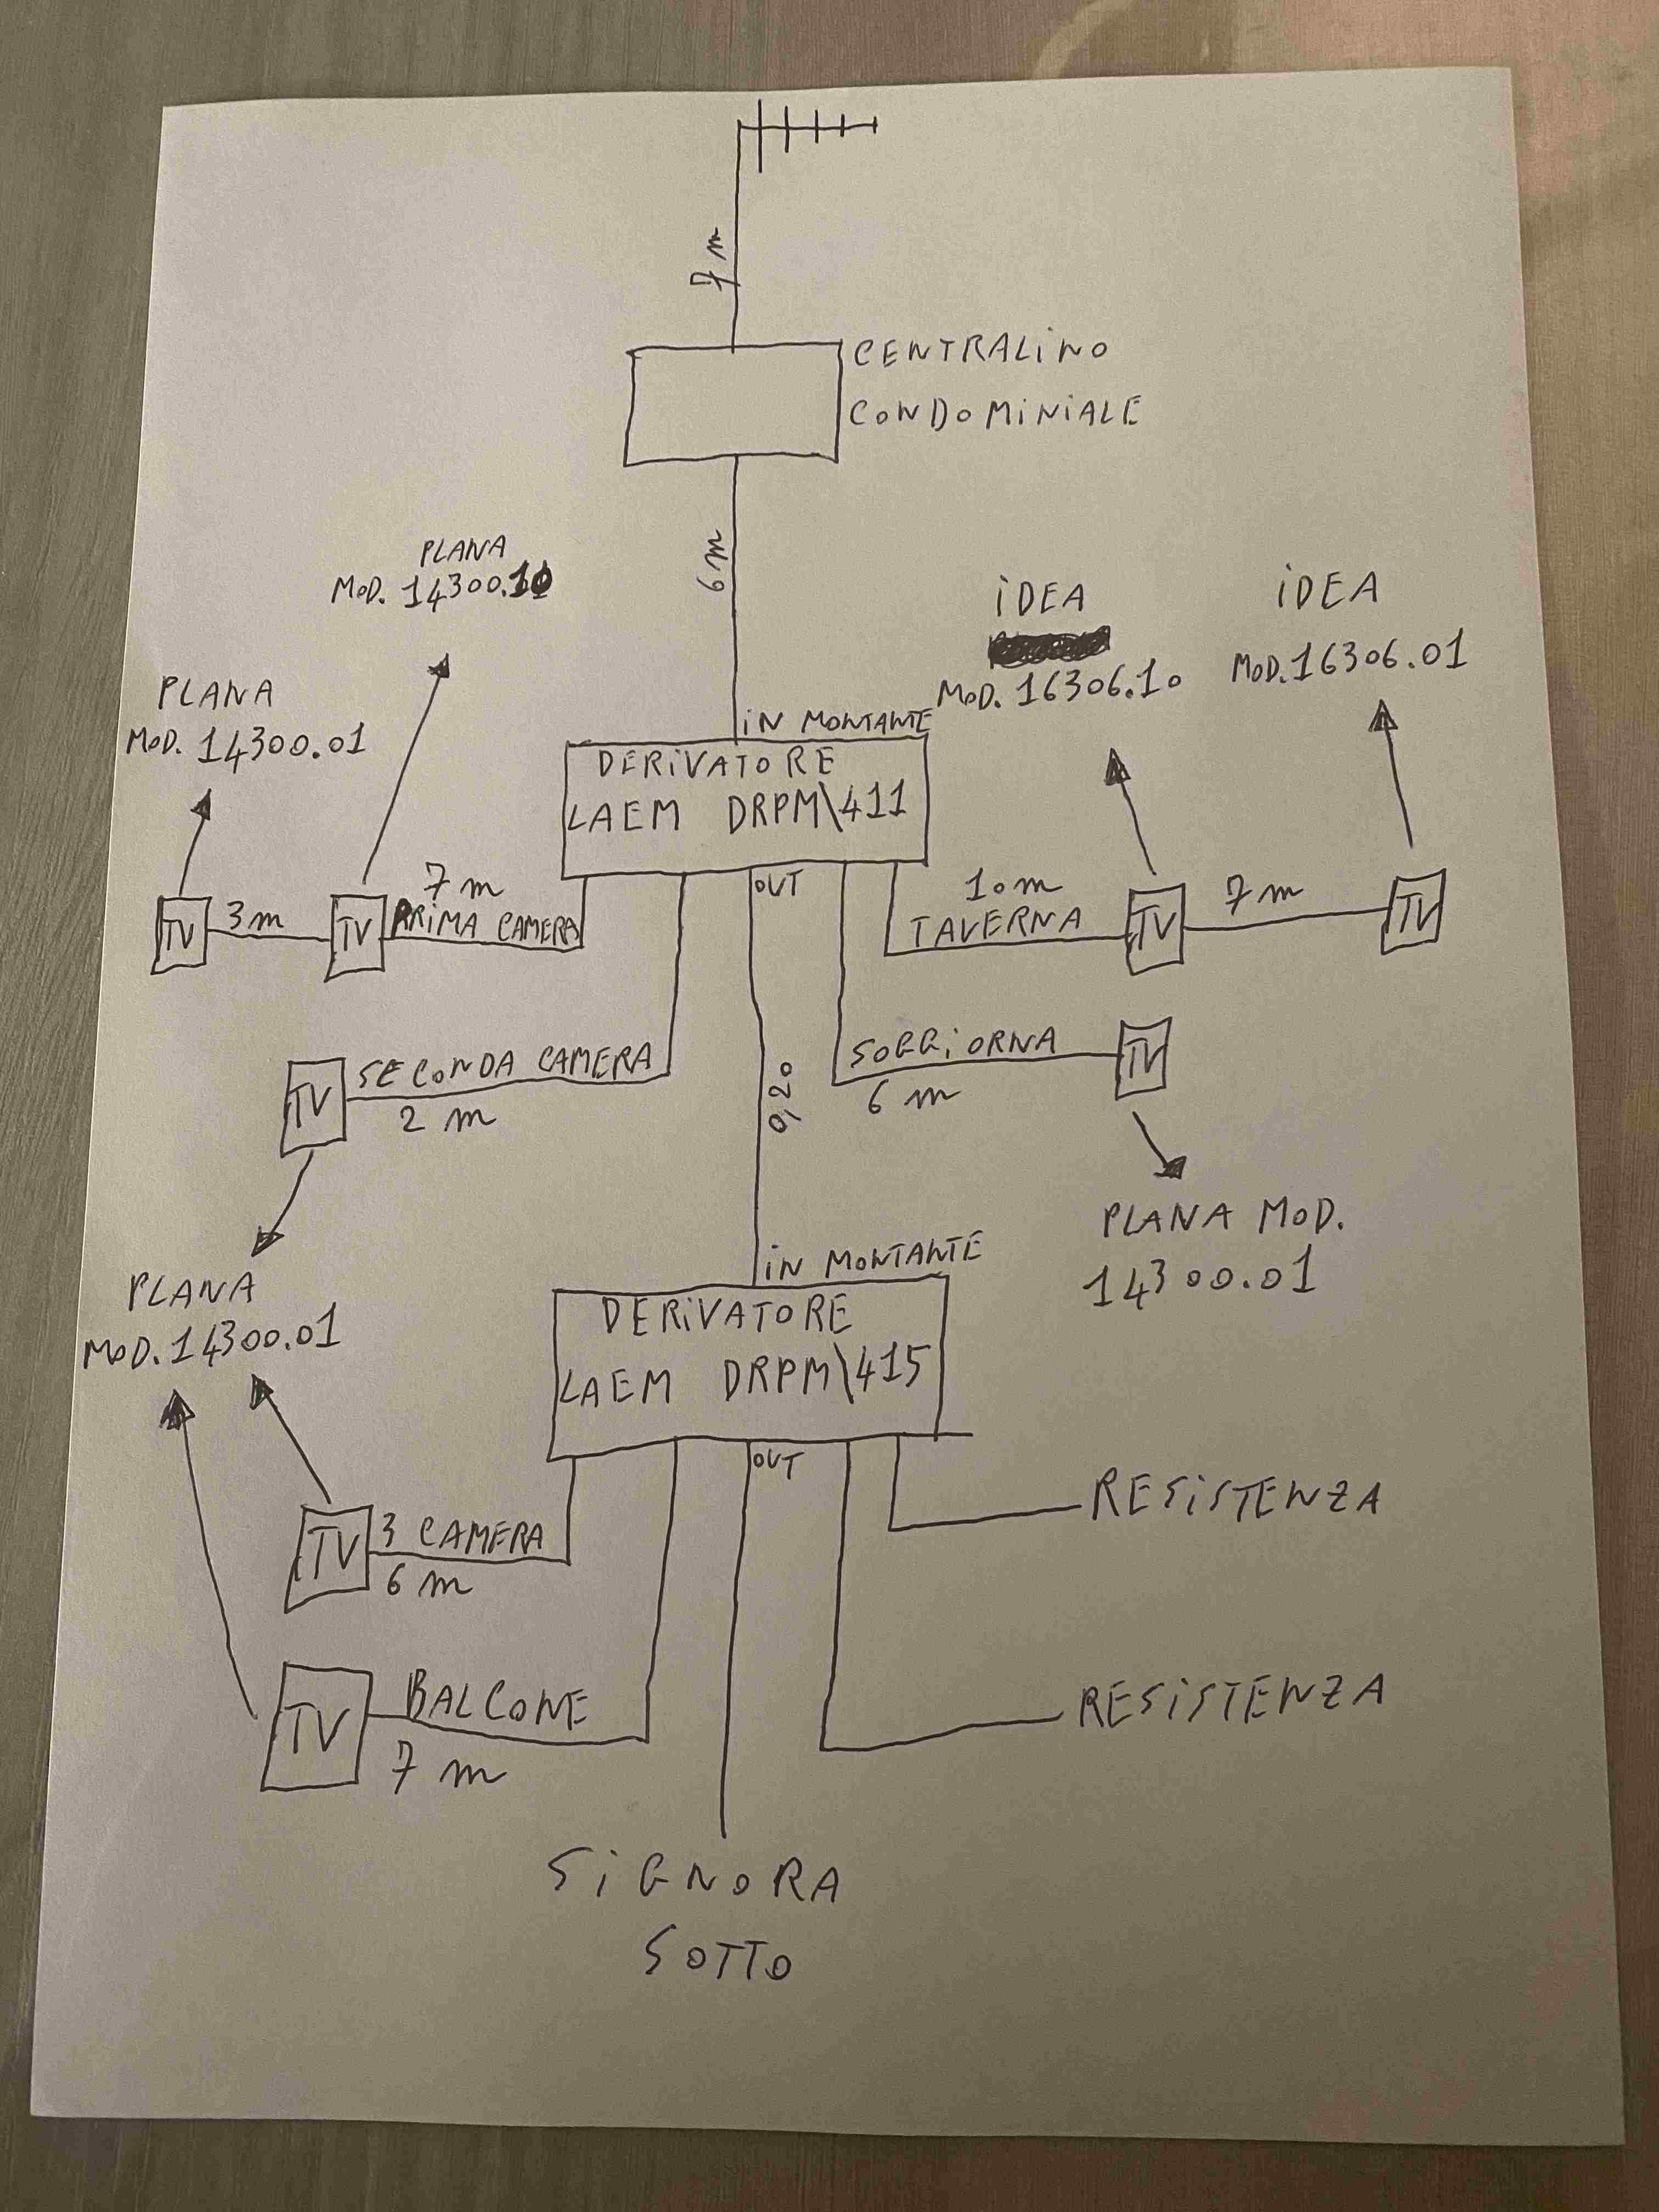 7 m
CENTRALINO
CONDOMINIALE
6 m
PLANA
MOD. 14300.10
IDEA
MOD. 16306.10
IDEA
MOD. 16306.01
PLANA
MOD. 14300.01
IN MONTANTE
DERIVATORE
LAEM DRPM\411
OUT
TV
3 m
TV
7 m
PRIMA CAMERA
10 m
TAVERNA
TV
7 m
TV
TV
SECONDA CAMERA
2 m
9,20
SOGGIORNA
6 m
TV
PLANA MOD.
14300.01
PLANA
MOD. 14300.01
IN MONTANTE
DERIVATORE
LAEM DRPM\415
OUT
TV
3 CAMERA
6 m
RESISTENZA
TV
BALCONE
7 m
RESISTENZA
SIGNORA
SOTTO